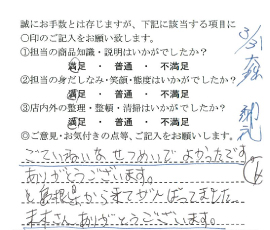 誠にお手数とは存じますが、下記に該当する項目に
○印のご記入をお願い致します。
①担当の商品知識・説明はいかがでしたか？
満足 ・ 普通 ・ 不満足
②担当の身だしなみ・笑顔・態度はいかがでしたか？
満足 ・ 普通 ・ 不満足
③店内外の整理・整頓・清掃はいかがでしたか？
満足 ・ 普通 ・ 不満足
◎ご意見・お気付きの点等、ご記入をお願いします。
ごていねいな せつめいで よかったです
ありがとうございます。
島根県から来てがんばってました
さん ありがとうございます。